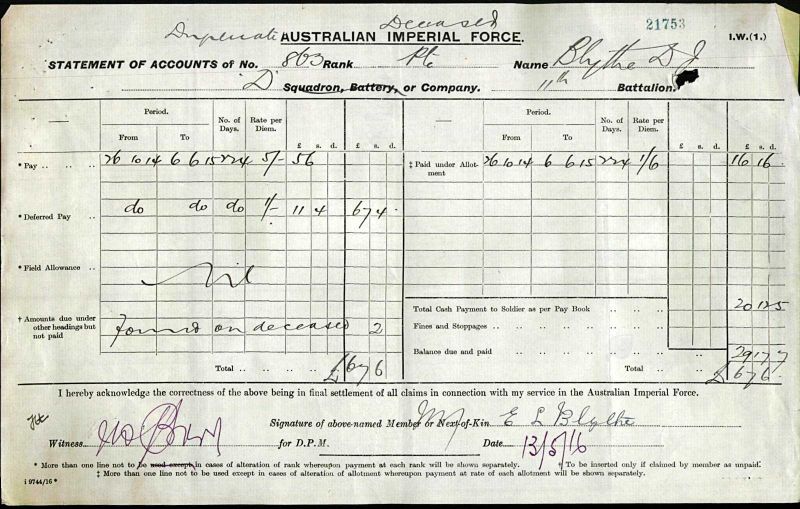 Duplicate Deceased 21753
AUSTRALIAN IMPERIAL FORCE. I.W.(1.)
STATEMENT OF ACCOUNTS of No. 863 Rank Pte Name Blythe D J
"D" Squadron, Battery, or Company. 11th Battalion.
Period. No. of Days. Rate per Diem. Period. No. of Days. Rate per Diem.
From To £ s. d. £ s. d. From To £ s. d. £ s. d.
* Pay .. .. .. 26 10 14 6 6 15 224 5/- 56 ‡ Paid under Allotment 26 10 14 6 6 15 224 1/6 16 16
* Deferred Pay .. do do do 1/- 11 4 67 4
* Field Allowance .. Nil
† Amounts due under other headings but not paid found on deceased 2
Total Cash Payment to Soldier as per Pay Book .. .. 20 12 5
Fines and Stoppages .. .. .. .. .. ..
Balance due and paid .. .. .. .. 29 17 7
Total .. .. £ 67 6 £ 67 6
I hereby acknowledge the correctness of the above being in final settlement of all claims in connection with my service in the Australian Imperial Force.
Signature of above-named Member or Next-of-Kin E L Blythe
Witness for D.P.M. Date 13/5/16
* More than one line not to be used except in cases of alteration of rank whereupon payment at each rank will be shown separately. † To be inserted only if claimed by member as unpaid.
‡ More than one line not to be used except in cases of alteration of allotment whereupon payment at rate of each allotment will be shown separately.
i 9744/16 *